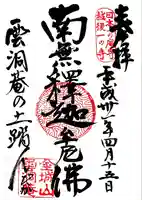 奉拝
日本一の庵
越後一の寺
平成卅一年四月十五日
南無釋迦牟尼佛
雲洞庵の土踏んだか
金城山
雲洞庵